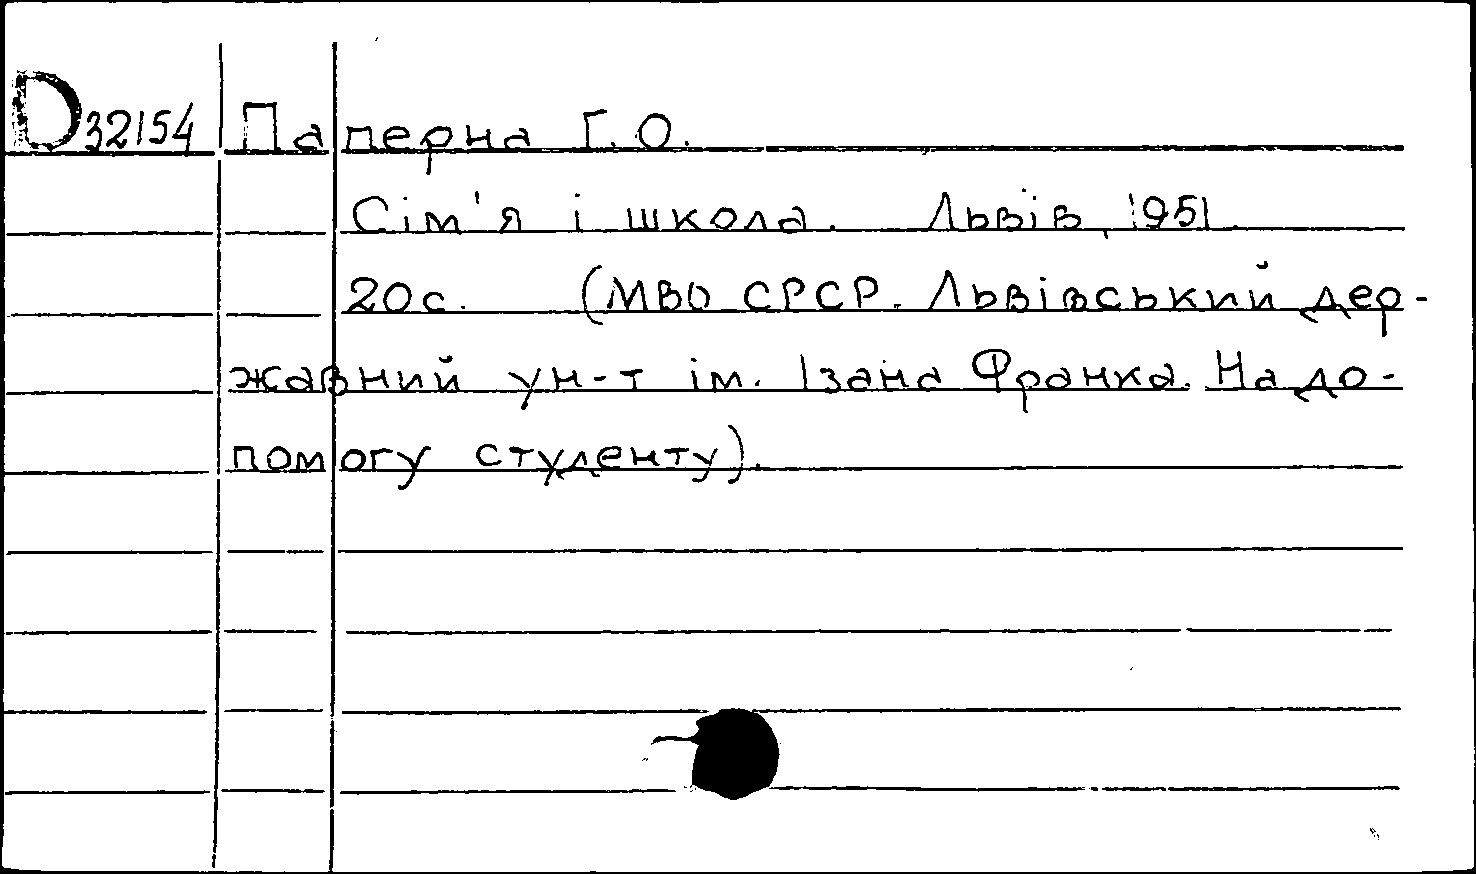 D 32154 Паперна Г.О.
Сім'я і школа. Львів, 1951.
20с. (МВО СРСР. Львівський дер-
жавний ун-т ім. Ізана Франка. На до-
помогу студенту).